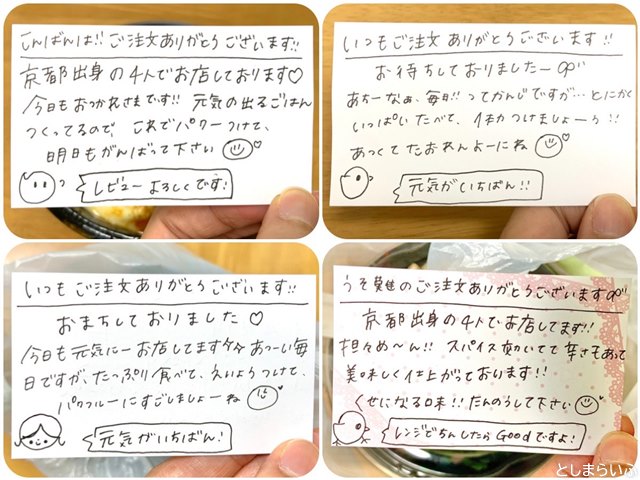 こんばんは!! ご注文ありがとうございます!!
京都出身の4人でお店しております♡
今日もおつかれさまです!! 元気の出るごはん
つくってるので、これでパワーつけて、
明日もがんばって下さい
レビューよろしくです!
いつもご注文ありがとうございます!!
お待ちしておりましたー
あちーなぁ、毎日!! ってかんじですが…とにかく
いっぱいたべて、体力つけましょーう!!
あつくてたおれんよーにね
元気がいちばん!!
いつもご注文ありがとうございます!!
おまちしておりました♡
今日も元気にーお店してます あつーい毎
日ですが、たっぷり食べて、えいようつけて、
パワフルーにすごしましょーね
元気がいちばん!
のご注文ありがとうございます
京都出身の4人でお店してます!!
担々め〜ん!! スパイス効いてて辛さもあって
美味しく仕上がっております!!
くせになる味!! たんのうして下さい
レンジでちんしたらGoodですよ!
としまらいふ